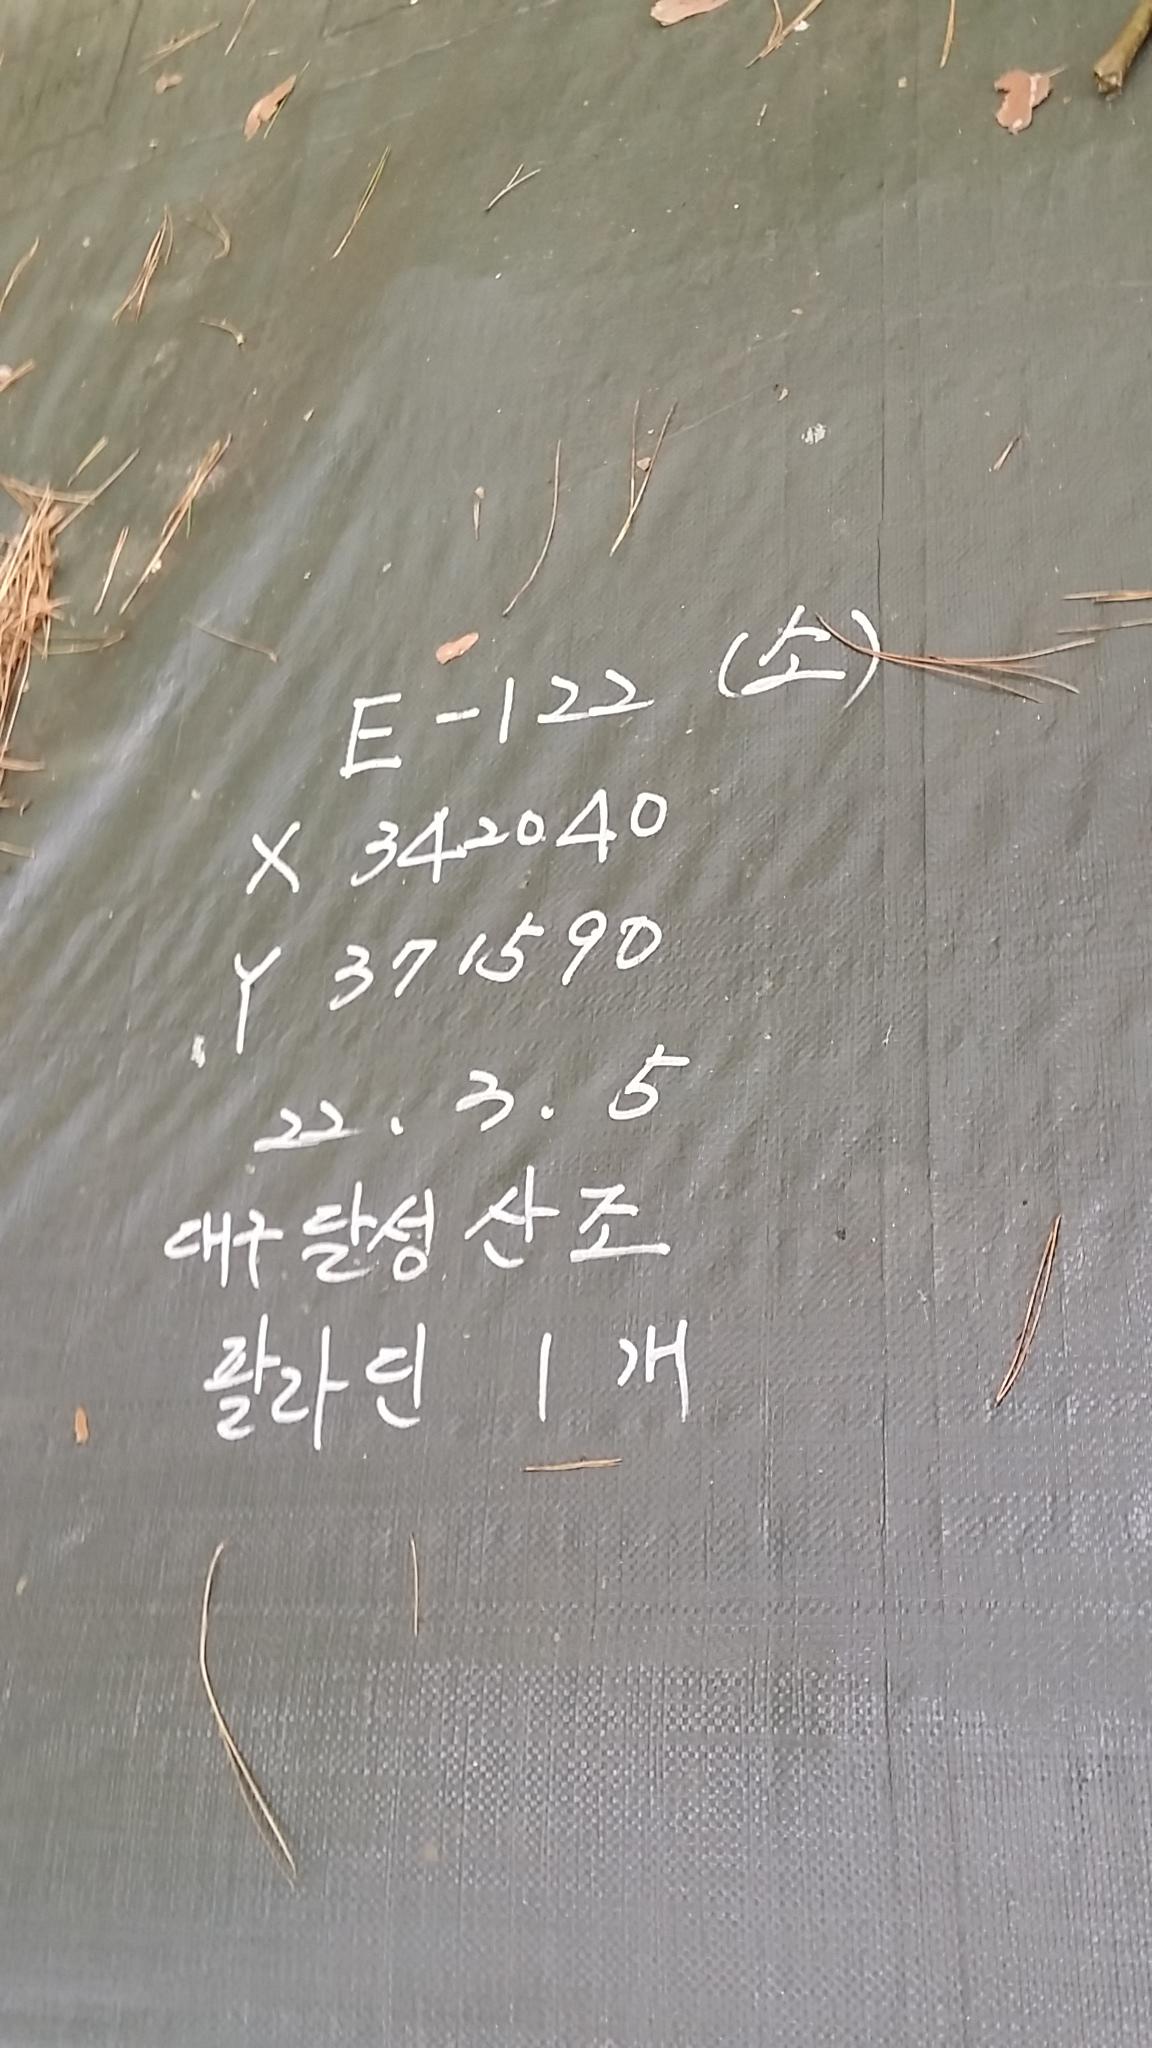 E-122 (소)
X 342040
Y 371590
22.3.5
대구달성 산조
팔라딘 1개